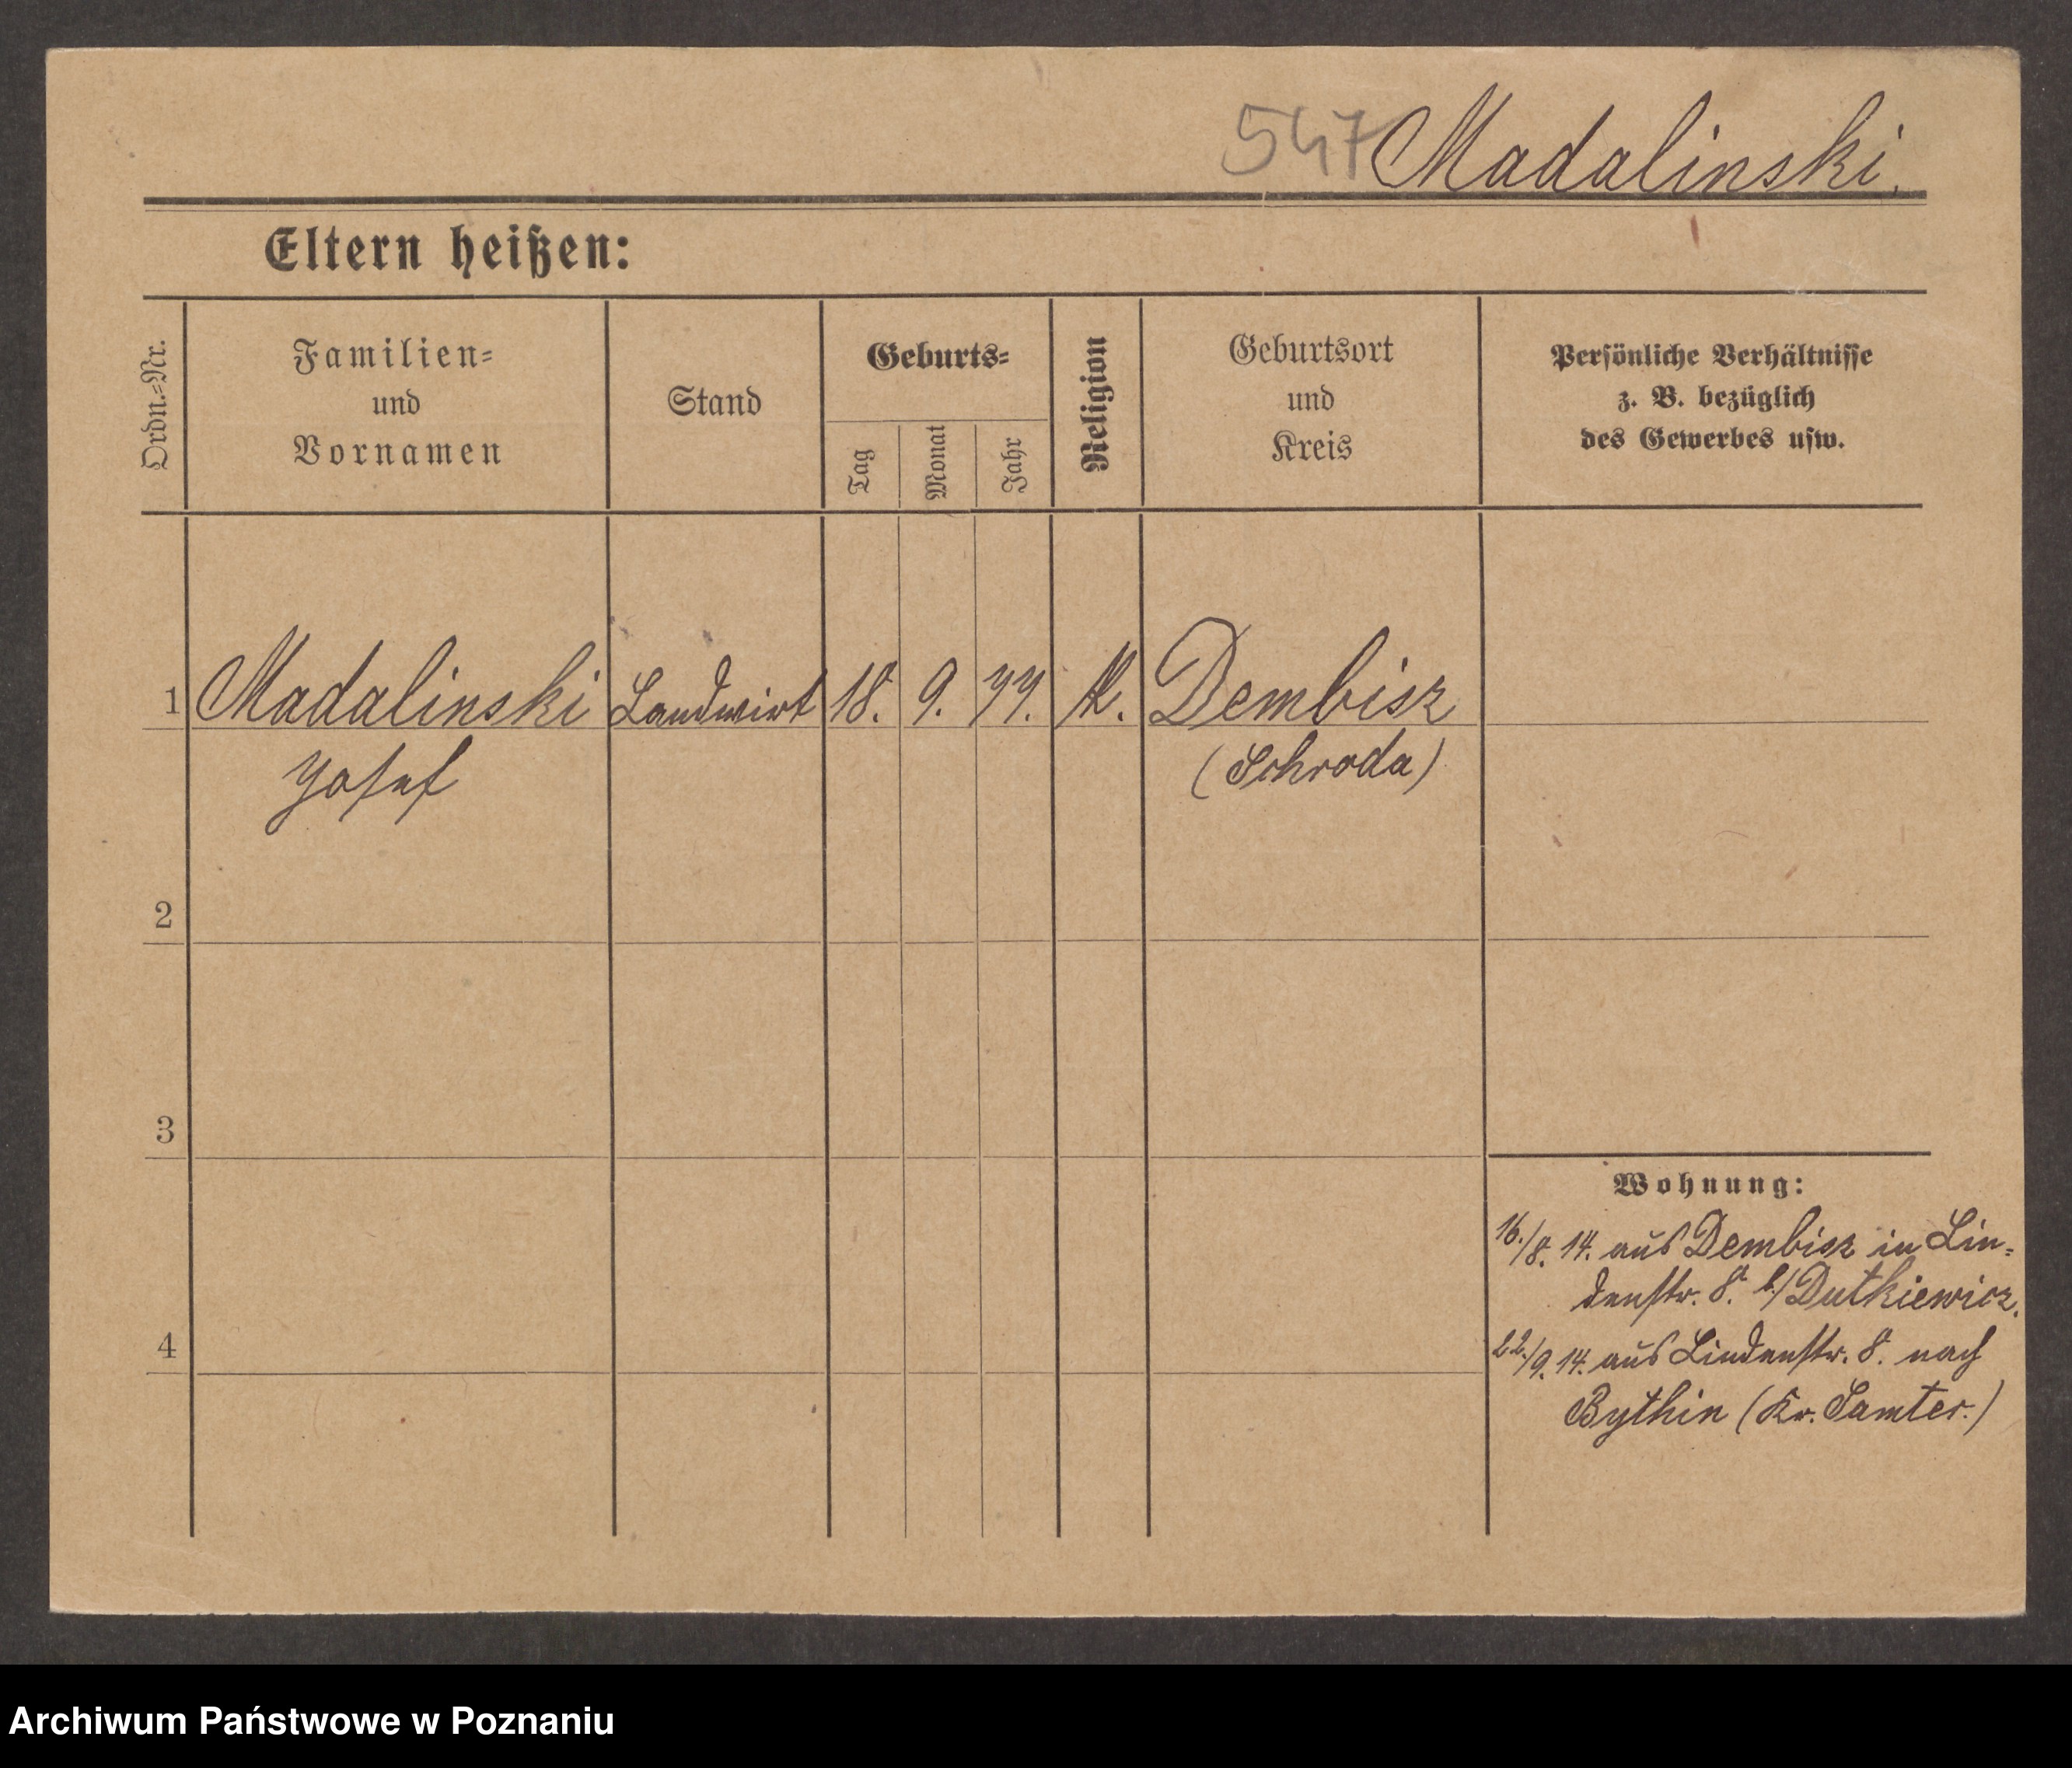 547 Madalinski.
Eltern heißen:
Ordn.=Nr.
Familien=
und
Vornamen
Stand
Geburts=
Tag
Monat
Jahr
Religion
Geburtsort
und
Kreis
Persönliche Verhältnisse
z. B. bezüglich
des Gewerbes usw.
1 Madalinski Landwirt 18. 9. K. Dembisz
Josef (Schroda)
2
3
Wohnung:
16./8. 14. aus Dembisz in Lin=
denstr. 8. b/Dutkiewicz.
4
22./9. 14. aus Lindenstr. 8. nach
Bythin (Kr. Samter.)
Archiwum Państwowe w Poznaniu